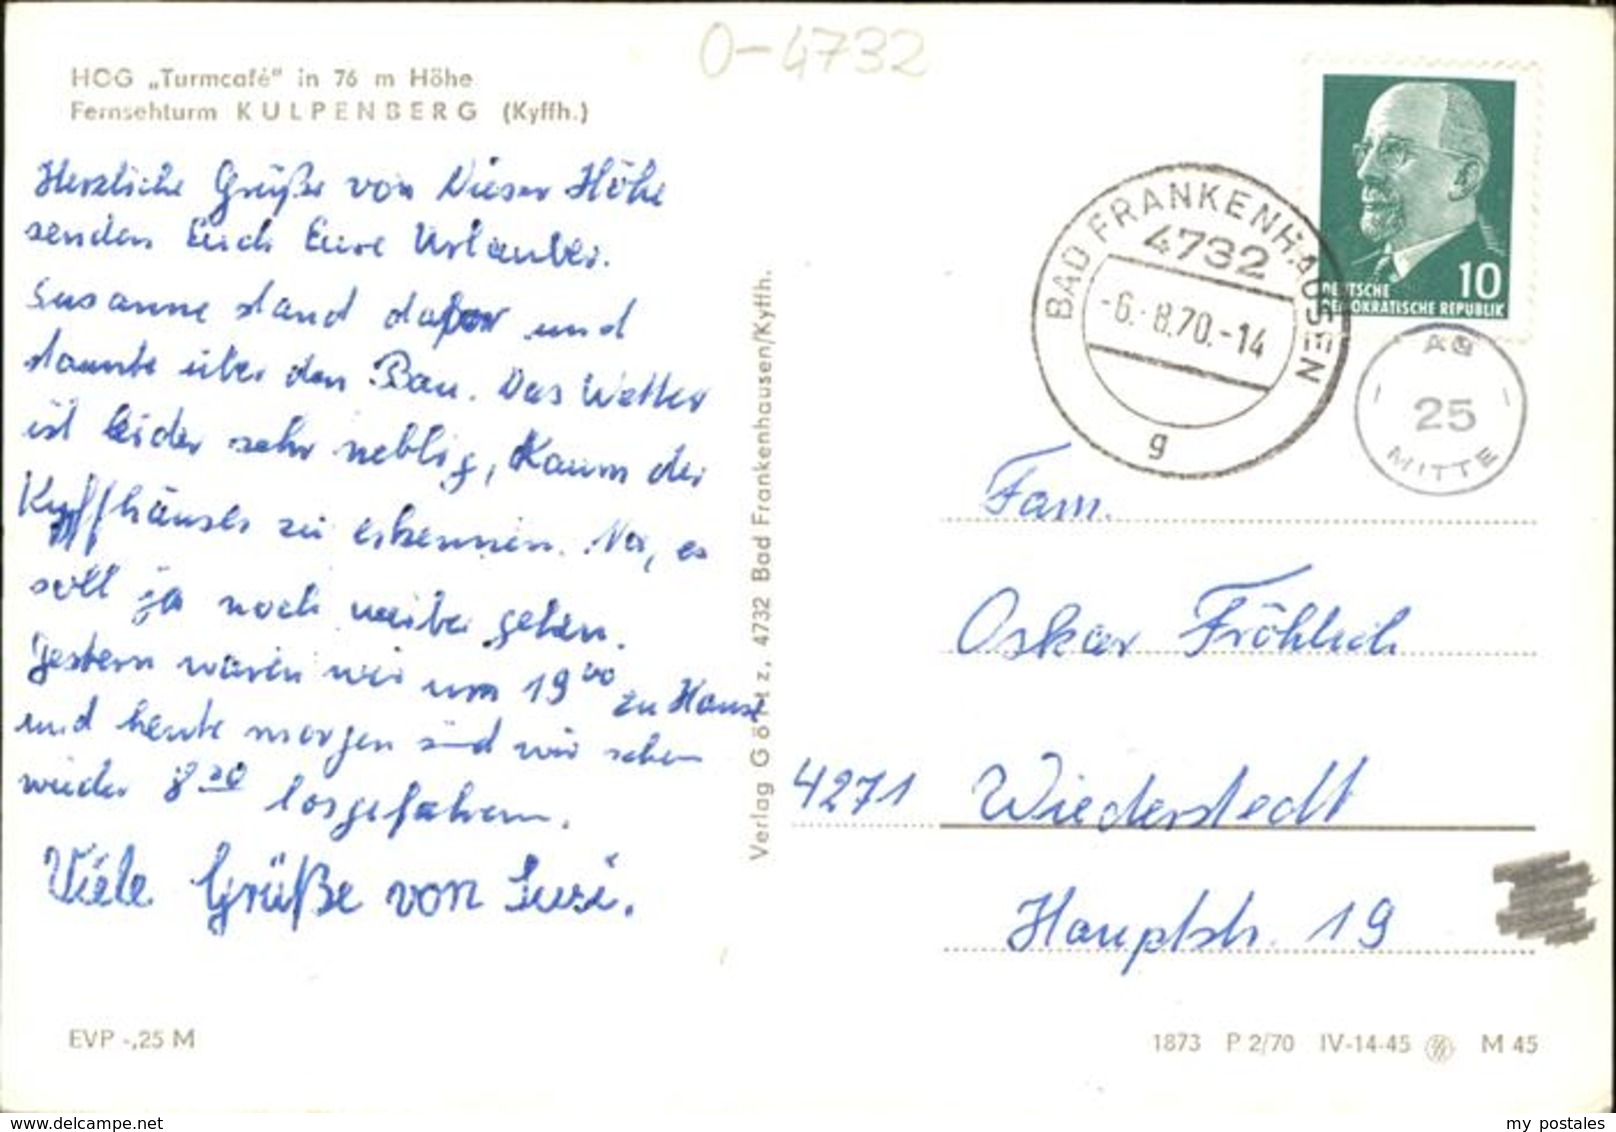 O-4732
HOG „Turmcafé" in 76 m Höhe
Fernsehturm KULPENBERG (Kyffh.)
Herzliche Grüße von dieser Höhe
senden Euch Eure Urlauber.
Susanne stand davor und
staunte über den Bau. Das Wetter
ist leider sehr neblig, kaum der
Kyffhäuser zu erkennen. Na, es
soll ja noch weiter gehen.
Gestern waren wir um 19⁰⁰ zu Hause
und heute morgen sind wir schon
wieder 8³⁰ losgefahren.
Viele Grüße von Susi.
EVP -,25 M
Verlag Götz, 4732 Bad Frankenhausen/Kyffh.
BAD FRANKENHAUSEN
4732
-6.-8.70.-14
g
10
DEUTSCHE
DEMOKRATISCHE REPUBLIK
25
MITTE
Fam.
Oskar Fröhlich
4271 Wiederstedt
Hauptstr. 19
1873 P 2/70 IV-14-45 M 45
www.delcampe.net
my_postales